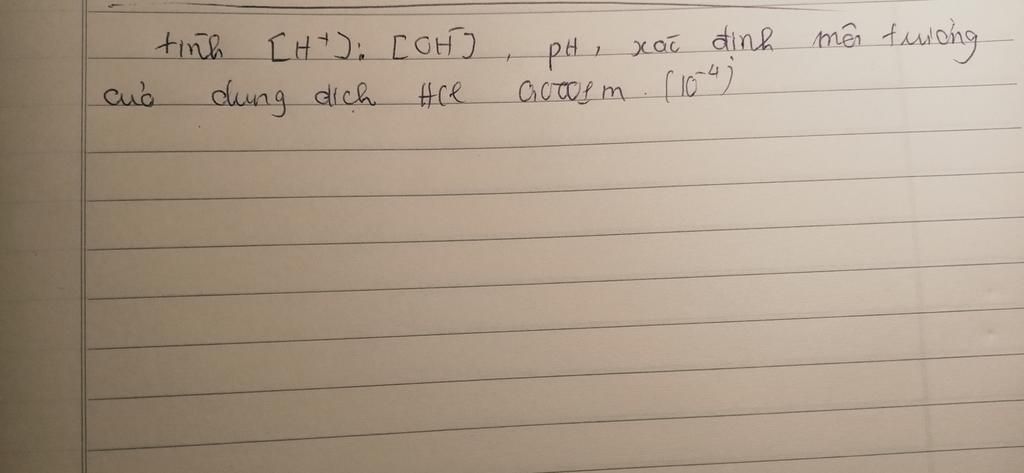 tính [H⁺]; [OH⁻], pH, xác định môi trường
của dung dịch HCl 0,0001 M. (10⁻⁴)